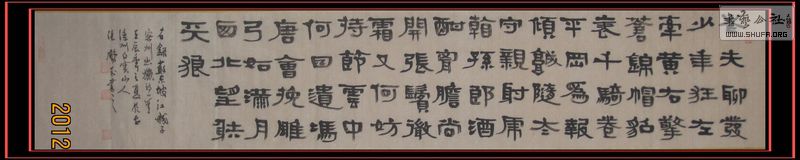 夫聊發
少年狂左
牽黃右擎
蒼錦帽貂
裘千騎卷
平岡為報
傾城隨太
守親射虎
看孫郎酒
酣胸膽尚
開張鬢微
霜又何妨
持節雲中
何日遣馮
唐會挽雕
弓如滿月
西北望射
天狼
蘇東坡江城子
密州出獵詞一首
2012
WWW.SHUFA.ORG